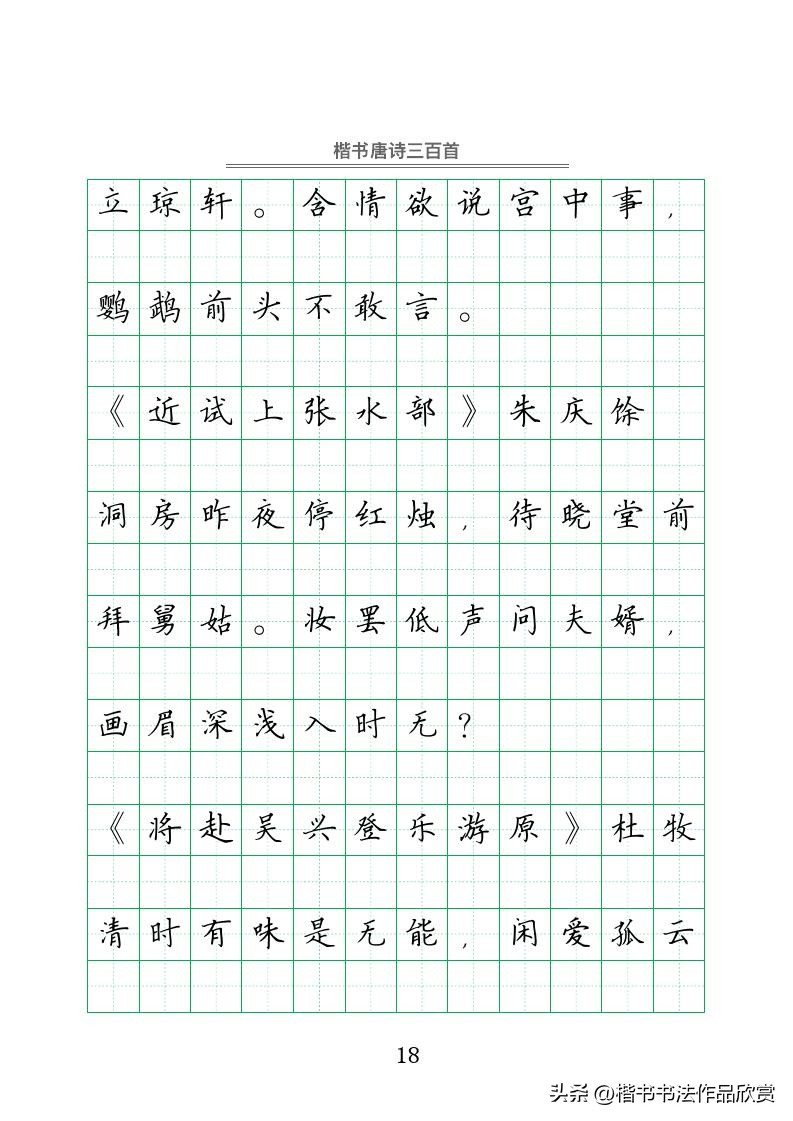 楷书唐诗三百首
立琼轩。含情欲说宫中事，
鹦鹉前头不敢言。
《近试上张水部》朱庆馀
洞房昨夜停红烛，待晓堂前
拜舅姑。妆罢低声问夫婿，
画眉深浅入时无？
《将赴吴兴登乐游原》杜牧
清时有味是无能，闲爱孤云
18
头条 @楷书书法作品欣赏